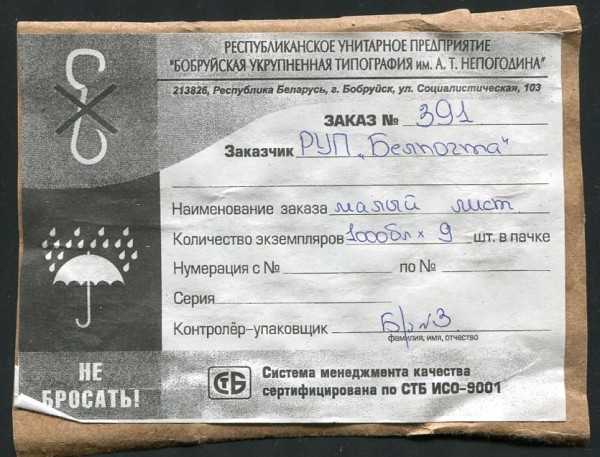 РЕСПУБЛИКАНСКОЕ УНИТАРНОЕ ПРЕДПРИЯТИЕ
"БОБРУЙСКАЯ УКРУПНЕННАЯ ТИПОГРАФИЯ им. А. Т. НЕПОГОДИНА"
213826, Республика Беларусь, г. Бобруйск, ул. Социалистическая, 103
ЗАКАЗ № 391
Заказчик РУП „Белпочта"
Наименование заказа малый лист
Количество экземпляров 1000бл х 9 шт. в пачке
Нумерация с № по №
Серия
Контролёр-упаковщик Бр№3
фамилия, имя, отчество
НЕ
БРОСАТЬ!
СТБ
Система менеджмента качества
сертифицирована по СТБ ИСО-9001